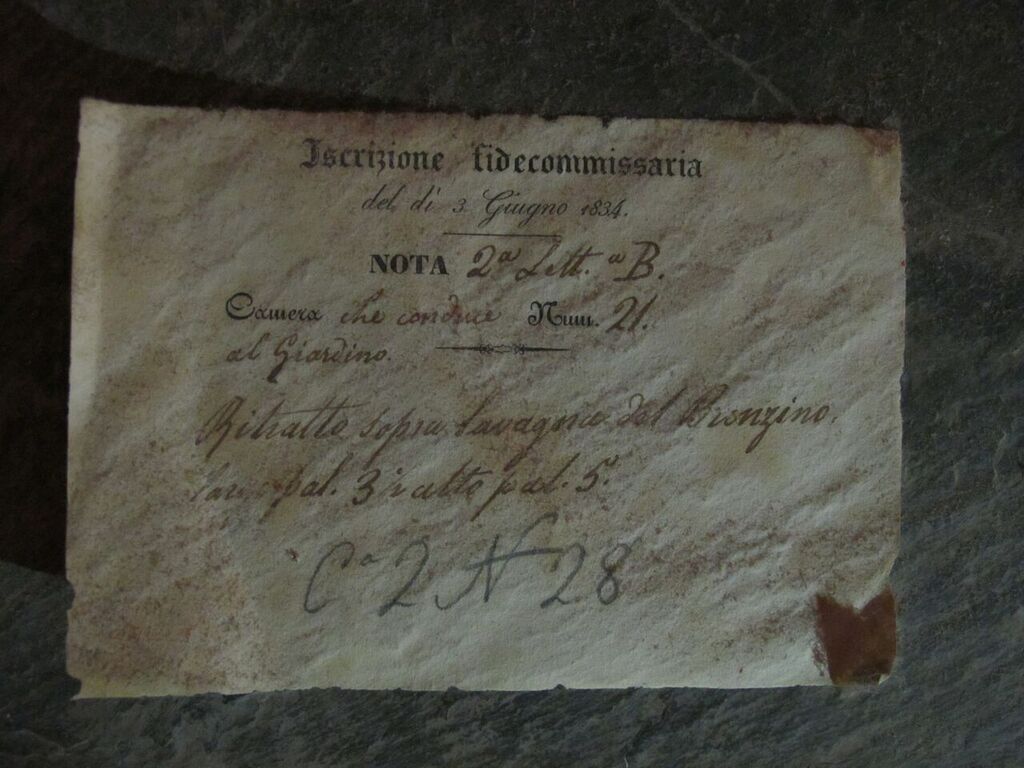 Iscrizione fidecommissaria
del dì 3 Giugno 1834.
NOTA 2ª Lett.ª B.
Camera che conduce Num. 21.
al Giardino.
Ritratto sopra lavagna del Bronzino.
pal. 3 alto pal. 5.
Cª 2 N 28